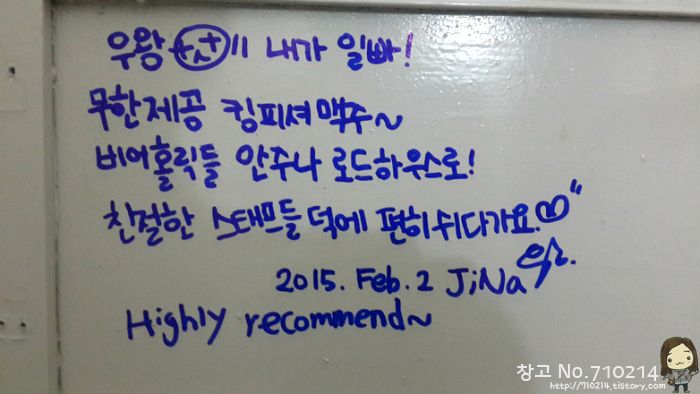 우왕 ㅋㅅㅋ !! 내가 일빠!
무한제공 킹피셔 맥주~
비어홀릭들 안주나 로드하우스로!
친절한 스태프들 덕에 편히 쉬다가요.♡"
2015. Feb. 2 JiNa
Highly recommend~
창고 No.710214
http://710214.tistory.com/